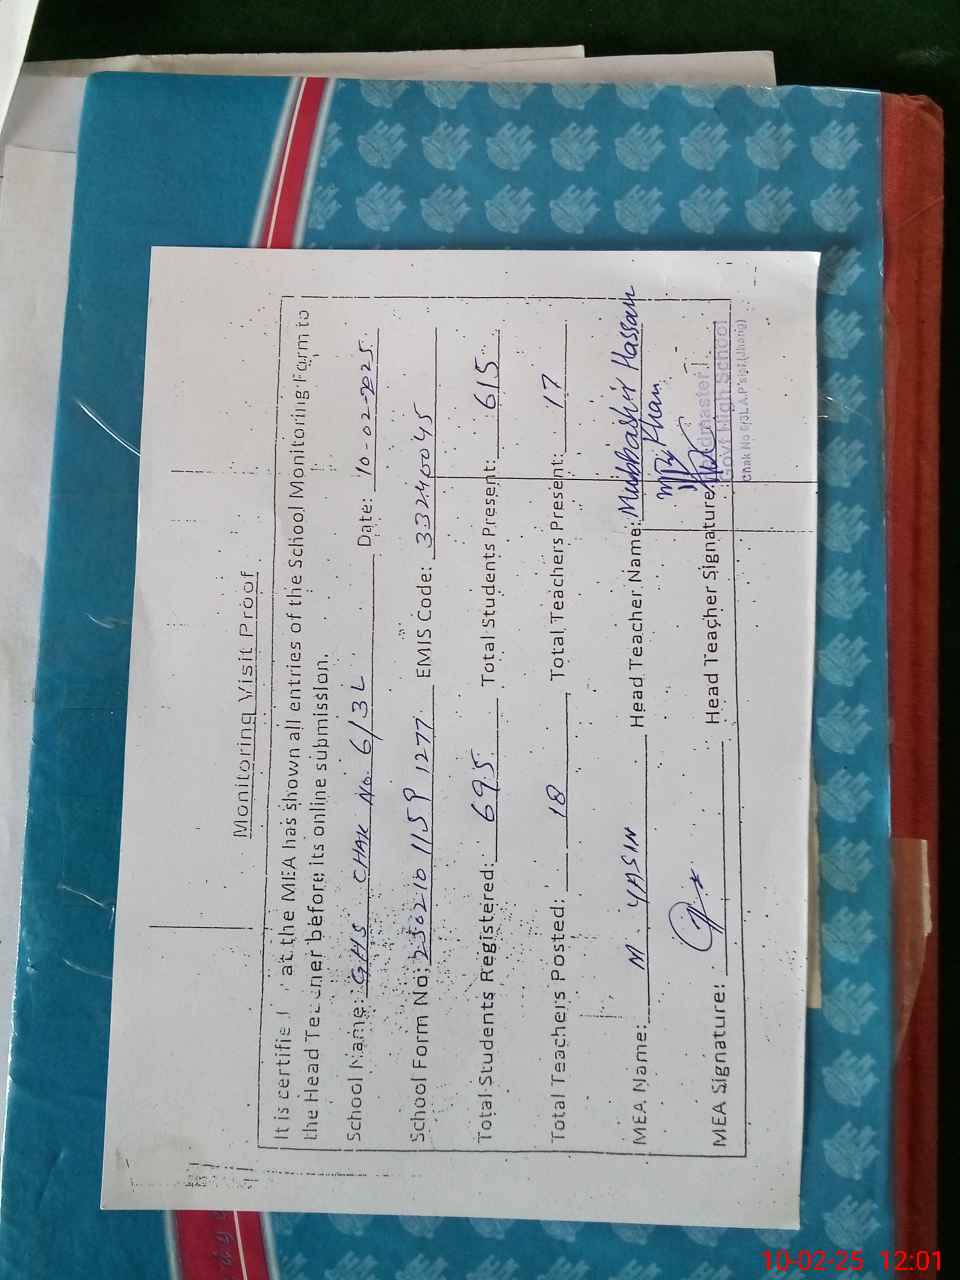 Monitoring Visit Proof
It is certified at the MEA has shown all entries of the School Monitoring Form to
the Head Teacher before its online submission.
School Name: GHS CHAK No. 6/3L Date: 10-02-2025
School Form No: 250210115P1277 EMIS Code: 33240045
Total Students Registered: 695 Total Students Present: 615
Total Teachers Posted: 18 Total Teachers Present: 17
MEA Name: M. YASIN Head Teacher Name: Mubbashir Hassan
Khan
MEA Signature: Head Teacher Signature
Headmaster
Govt High School
Chak No 6/3L A.P.Sial (Jhang)
10-02-25 12:01